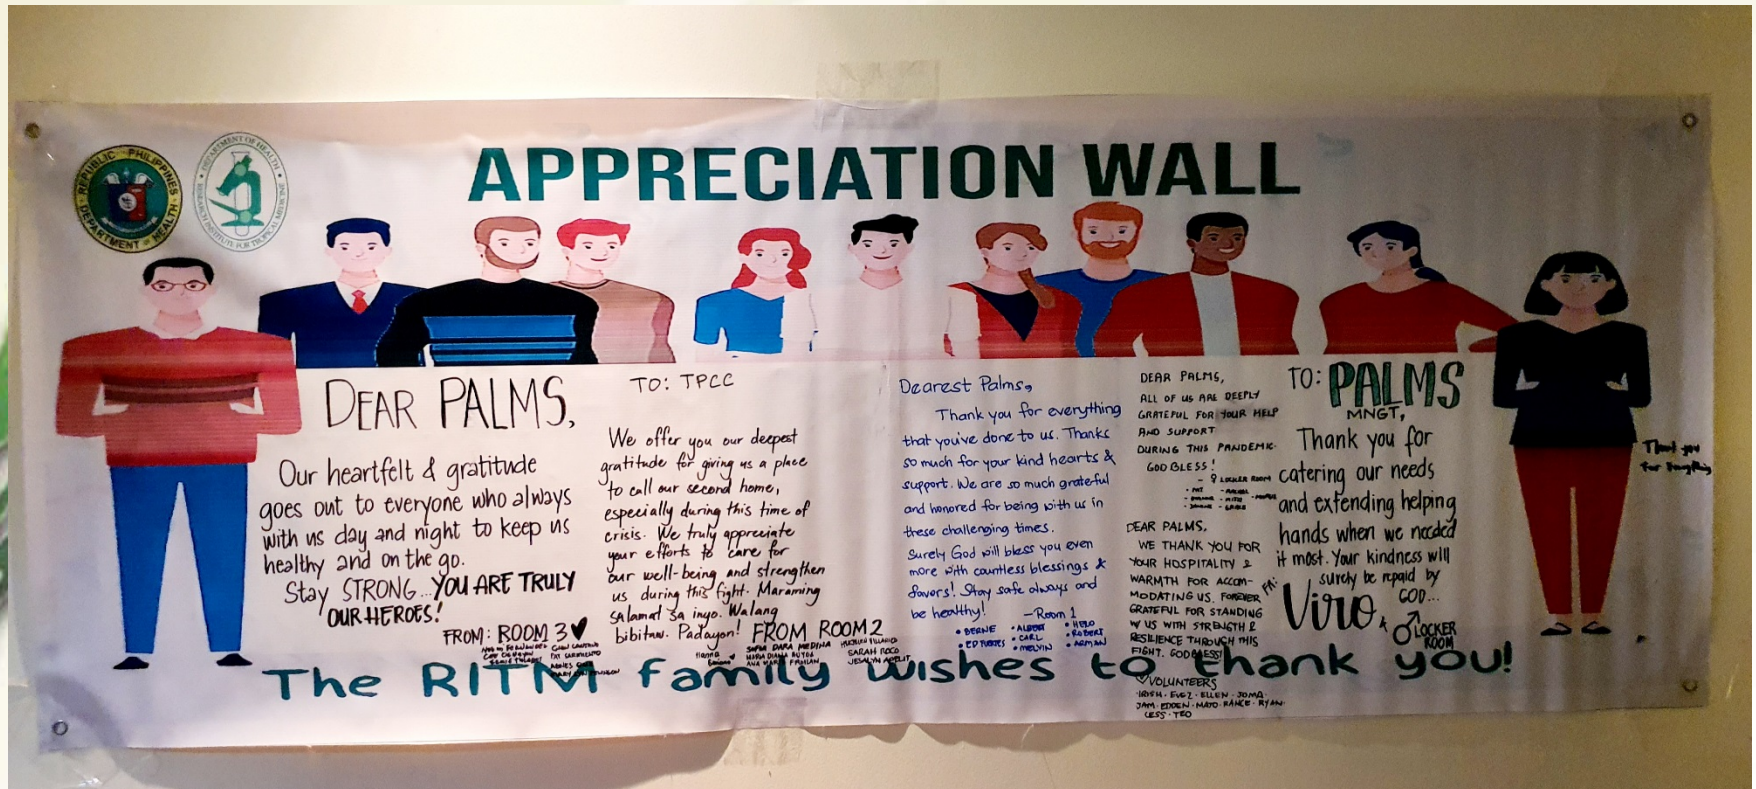 REPUBLIC PHILIPPINES
DEPARTMENT OF HEALTH
DEPARTMENT OF HEALTH
RESEARCH INSTITUTE FOR TROPICAL MEDICINE
APPRECIATION WALL
DEAR PALMS,
Our heartfelt & gratitude
goes out to everyone who always
with us day and night to keep us
healthy and on the go.
Stay STRONG... YOU ARE TRULY
OUR HEROES!
FROM: ROOM 3
TO: TPCC
We offer you our deepest
gratitude for giving us a place
to call our second home,
especially during this time of
crisis. We truly appreciate
your efforts to care for
our well-being and strengthen
us during this fight. Maraming
salamat sa inyo. Walang
bibitaw. Padayon! FROM ROOM 2
SOFIA DARA MEDINA
SARAH ROCO
Dearest Palms,
Thank you for everything
that you've done to us. Thanks
so much for your kind hearts &
support. We are so much grateful
and honored for being with us in
these challenging times.
Surely God will bless you even
more with countless blessings &
favors! Stay safe always and
be healthy! — Room 1
• BERNE • ALBERT • HERO
• ED TORRES • CARL • ROBERT
• MELVIN • ARMAN
DEAR PALMS,
ALL OF US ARE DEEPLY
GRATEFUL FOR YOUR HELP
AND SUPPORT
DURING THIS PANDEMIC.
GOD BLESS!
- ♀ LOCKER ROOM
DEAR PALMS,
WE THANK YOU FOR
YOUR HOSPITALITY &
WARMTH FOR ACCOM-
MODATING US. FOREVER
GRATEFUL FOR STANDING
W/ US WITH STRENGTH &
RESILIENCE THROUGH THIS
FIGHT. GOD BLESS!
♡ VOLUNTEERS
IRISH · EVEZ · ELLEN · JOMA ·
JAM · EDDEN · MAYO · RANCE · RYAN ·
CESS · TEO
TO: PALMS
MNGT,
Thank you for
catering our needs
and extending helping
hands when we needed
it most. Your kindness will
surely be repaid by
GOD...
FR: Viro &
♂ LOCKER
ROOM
Thank you
For Everything
The RITM family wishes to thank you!